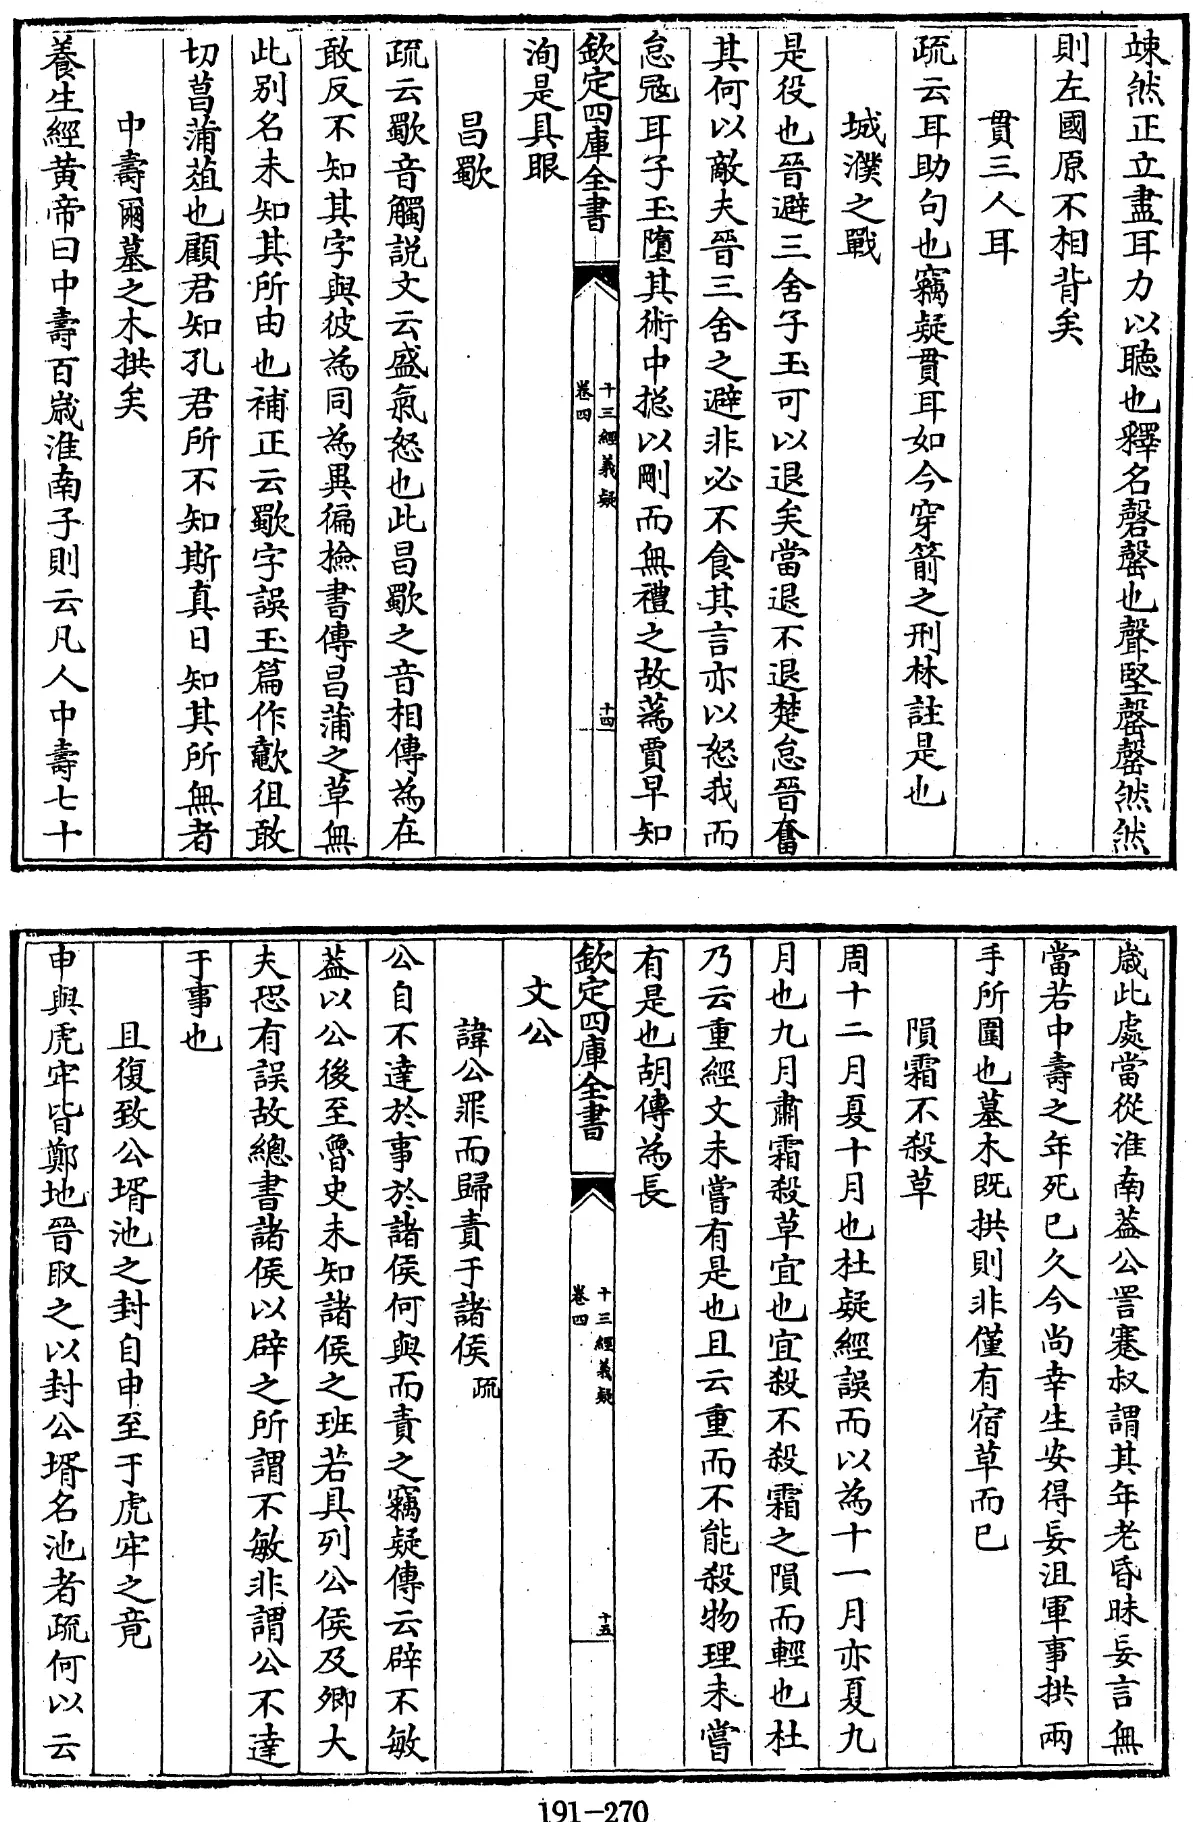 竦然正立盡耳力以聽也釋名磬罄也聲堅罄罄然然
則左國原不相背矣
貫三人耳
疏云耳助句也竊疑貫耳如今穿箭之刑林註是也
城濮之戰
是役也晉避三舍子玉可以退矣當退不退楚怠晉奮
其何以敵夫晉三舍之避非必不食其言亦以怒我而
怠冦耳子玉墮其術中揔以剛而無禮之故蒍賈早知
欽定四庫全書
十三經義疑
卷四
十四
洵是具眼
昌歜
疏云歜音觸説文云盛氣怒也此昌歜之音相傳為在
敢反不知其字與彼為同為異徧撿書傳昌蒲之草無
此别名未知其所由也補正云歜字誤玉篇作歜徂敢
切菖蒲葅也顧君知孔君所不知斯真日知其所無者
中壽爾墓之木拱矣
養生經黄帝曰中壽百歲淮南子則云凡人中壽七十
歲此處當從淮南葢公詈蹇叔謂其年老昏昧妄言無
當若中壽之年死已久今尚幸生安得妄沮軍事拱兩
手所圍也墓木既拱則非僅有宿草而已
隕霜不殺草
周十二月夏十月也杜疑經誤而以為十一月亦夏九
月也九月肅霜殺草宜也宜殺不殺霜之隕而輕也杜
乃云重經文未嘗有是也且云重而不能殺物理未嘗
有是也胡傳為長
欽定四庫全書
十三經義疑
卷四
十五
文公
諱公罪而歸責于諸侯疏
公自不達於事於諸侯何與而責之竊疑傳云辟不敏
葢以公後至魯史未知諸侯之班若具列公侯及卿大
夫恐有誤故總書諸侯以辟之所謂不敏非謂公不達
于事也
且復致公壻池之封自申至于虎牢之竟
申與虎牢皆鄭地晉取之以封公壻名池者疏何以云
191-270